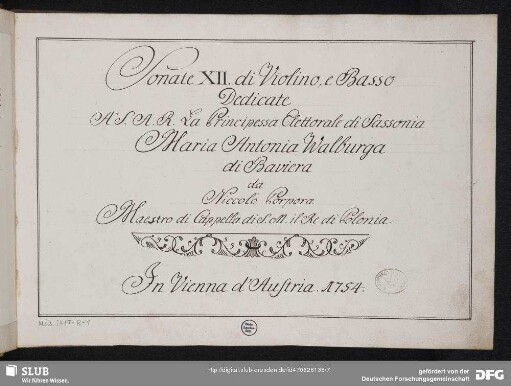 Sonate XII. di Violino, e Basso
Dedicate
A S. A. R. La Principessa Elettorale di Sassonia
Maria Antonia Walburga
di Baviera
da
Niccolò Porpora
Maestro di Cappella di S. M. il Re di Polonia.
In Vienna d'Austria. 1754.
SLUB
Wir führen Wissen.
gefördert von der
Deutschen Forschungsgemeinschaft
DFG